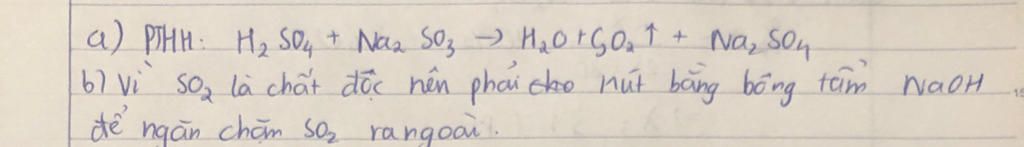 a) PTHH: H₂SO₄ + Na₂SO₃ → H₂O + SO₂↑ + Na₂SO₄
b) Vì SO₂ là chất độc nên phải nút bằng bông tẩm NaOH
để ngăn chặn SO₂ ra ngoài.